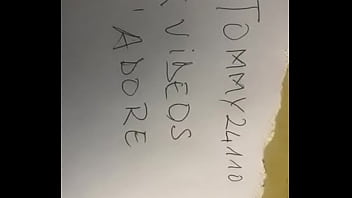 TOMMY24110
XVIDEOS
'ADORE